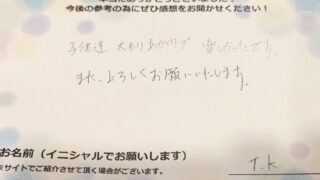 本当にありがとうございました！
今後の参考の為にぜひ感想をお聞かせください！
子供達 大もりあがりで 楽しかったです。
また、よろしくお願いいたします。
お名前（イニシャルでお願いします）
※サイトでご紹介させて頂く場合がございます。
T.K